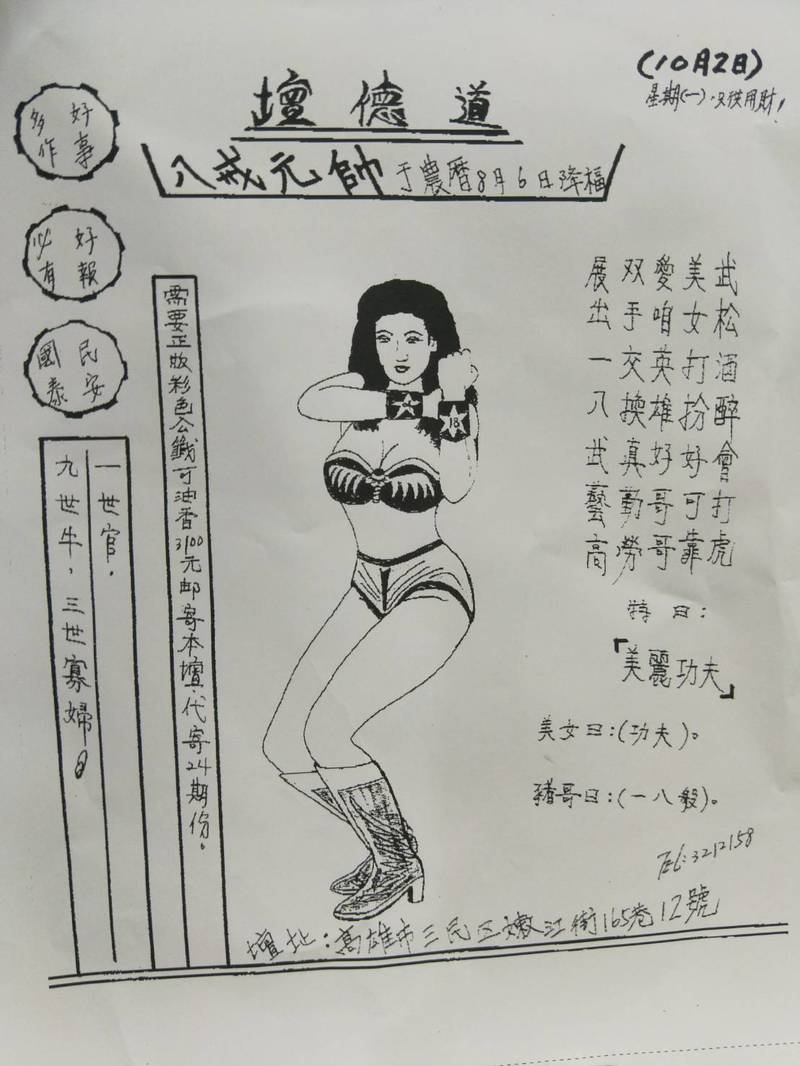 (10月2日)
星期(一)
壇德道
八戒元帥于農曆8月6日降福
好事
多作
好報
必有
民安
國泰
武松酒醉會打虎
美女打扮好可靠
愛咱英雄好哥哥
双手交換真勤勞
展出一八武藝高
「美麗功夫」
美女曰:(功夫)。
豬哥曰:(一八般)。
18
需要正版彩色公籤可油香3100元邮寄本壇代寄24期份。
一世官.
九世牛,三世寡婦。
TEL:3212158
壇地:高雄市三民区嫩江街165巷12號